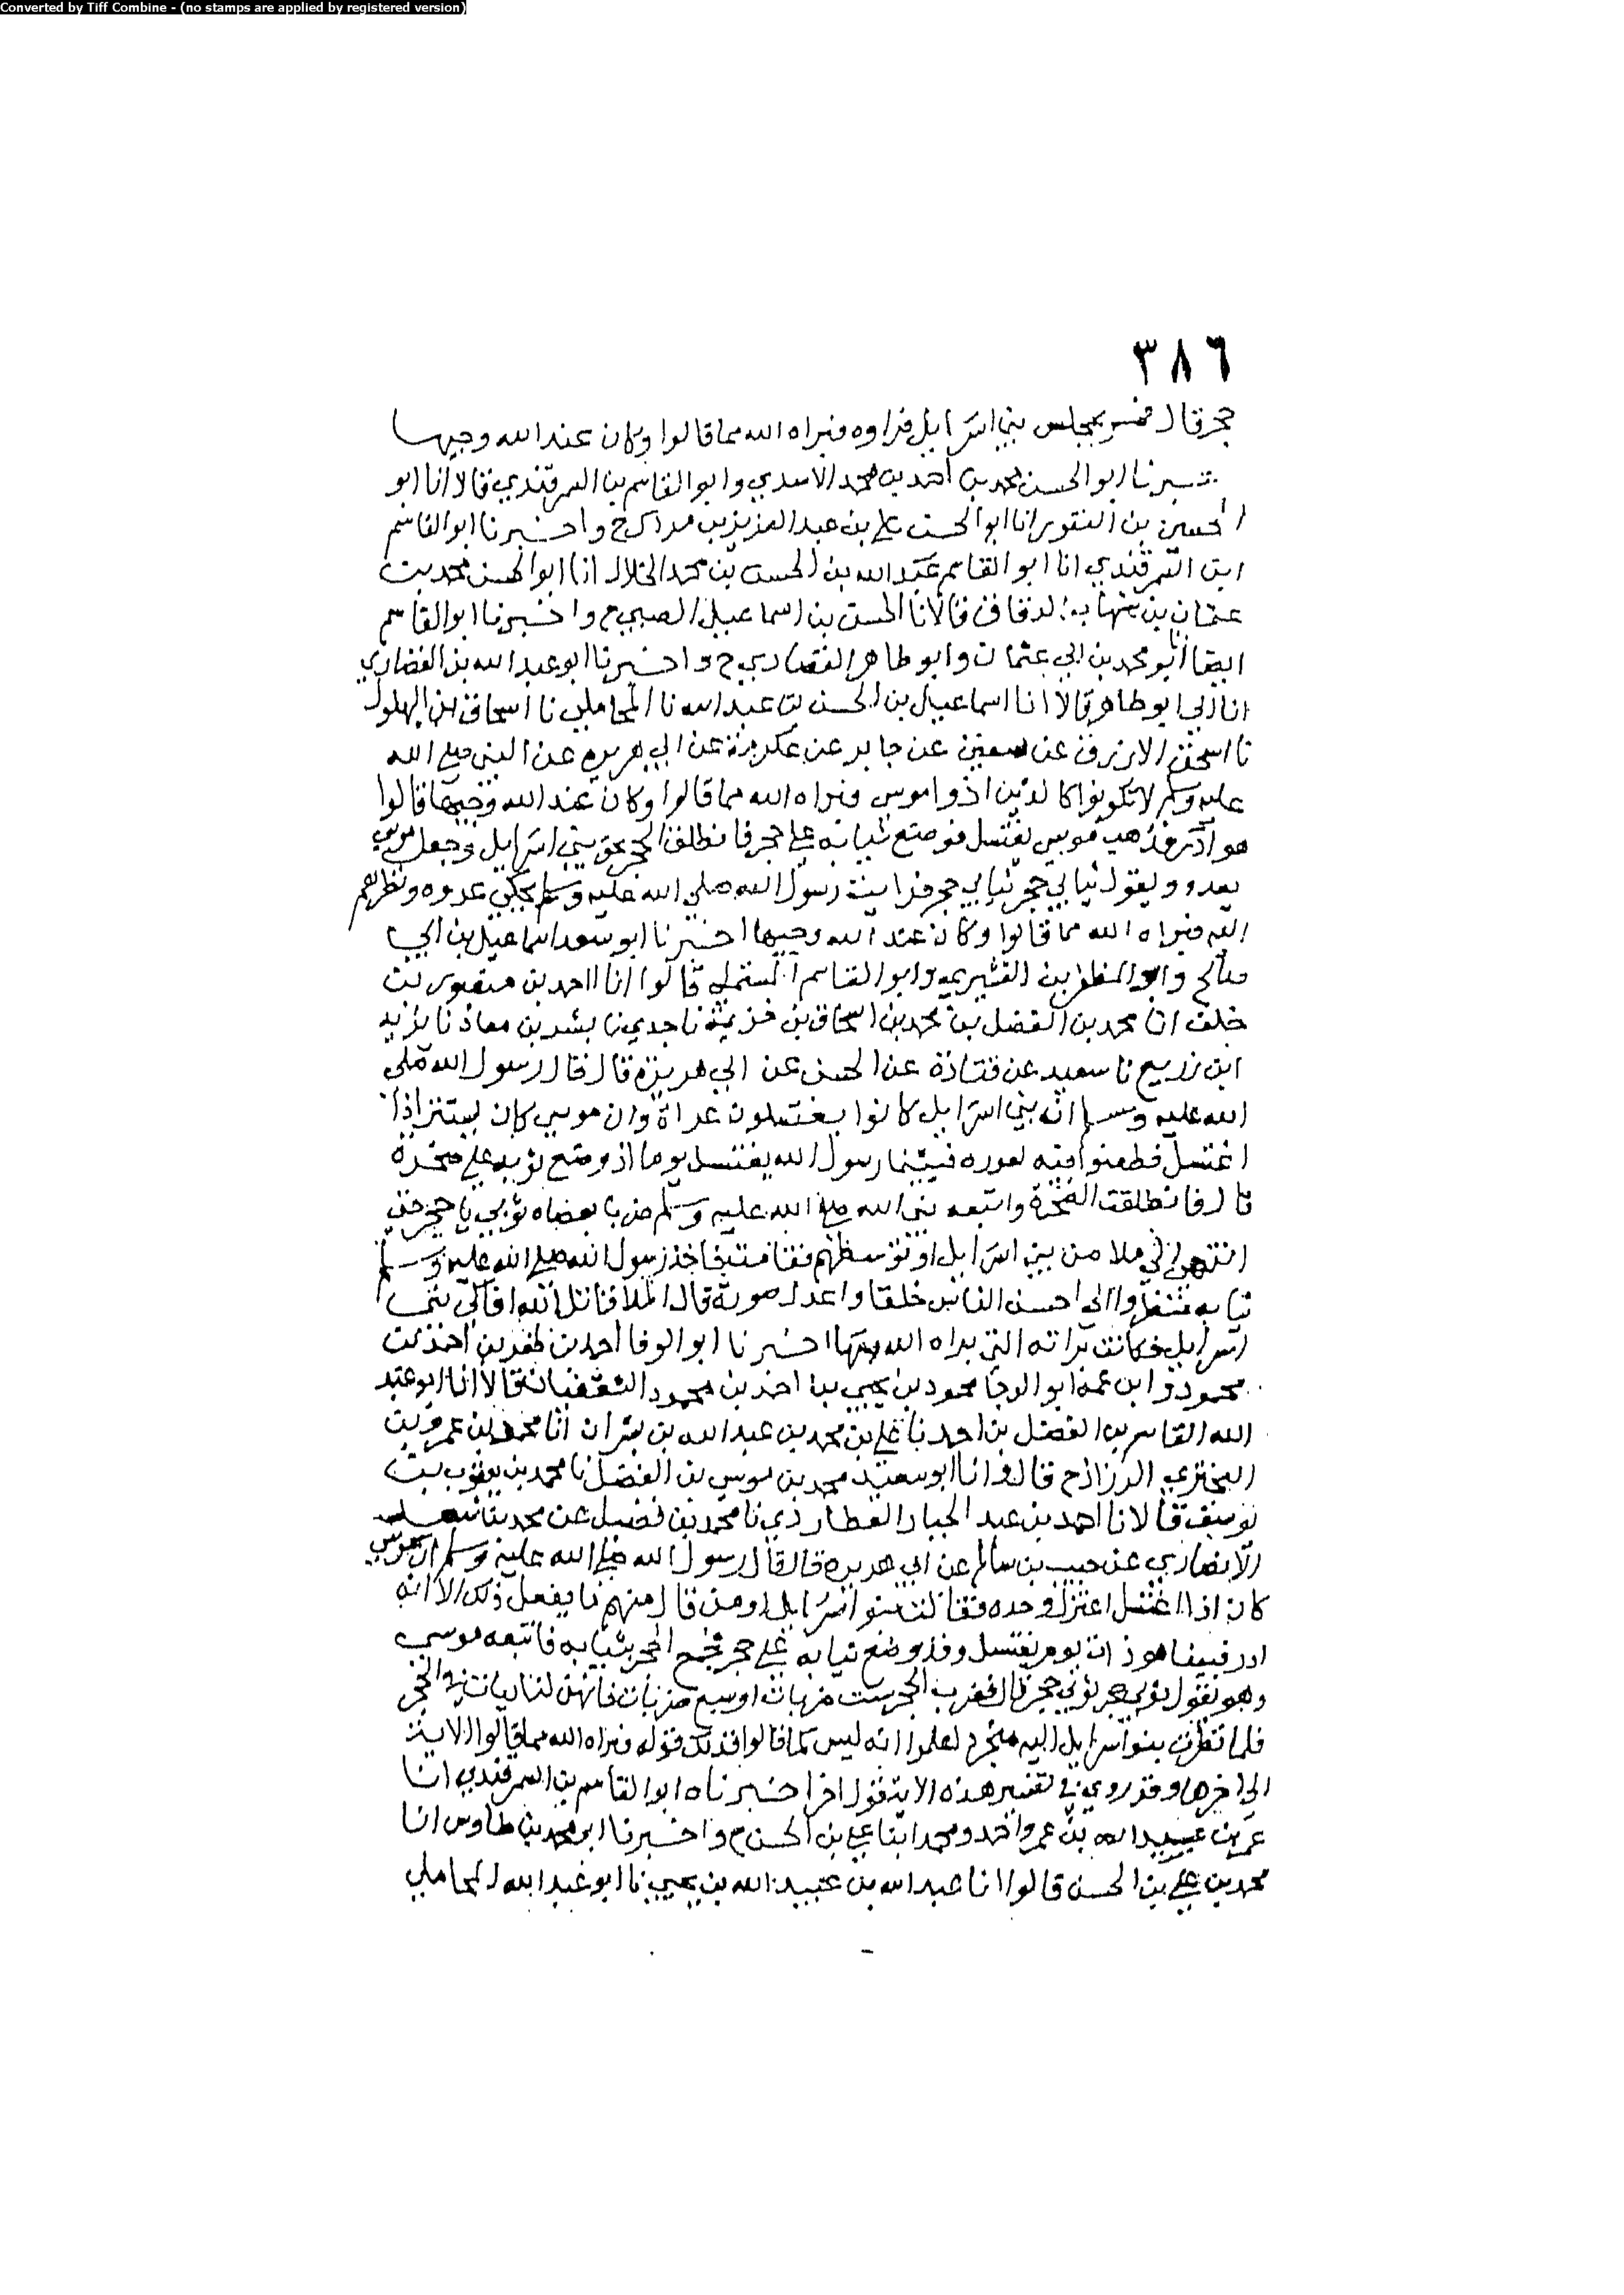 Converted by Tiff Combine - (no stamps are applied by registered version)
٣٨٦
حجر قال فمر بمجلس بني اسرايل فراوه فبراه الله مما قالوا وكان عند الله وجيها
ابو الحسن محمد بن احمد بن محمد الاسدي وابو القاسم بن السمرقندي قالا انا ابو
الحسين بن النقور انا ابو الحسن علي بن عبد العزيز بن مردك ح واخبرنا ابو القاسم
ابن السمرقندي انا ابو القاسم عبد الله بن الحسن بن محمد الخلال انا ابو الحسن محمد بن
عثمان بن شهاب الدقاق قالا نا الحسن بن اسماعيل الضبي ح واخبرنا ابو القاسم
ايضا انا ابو محمد بن ابي عثمان وابو طاهر القصاري ح واخبرنا ابو عبد الله بن القصاري
انا ابي ابو طاهر قالا انا اسماعيل بن الحسن بن عبد الله نا المحاملي نا اسحاق بن البهلول
نا اسحق الازرق عن سفين عن جابر عن عكرمة عن ابي هريره عن النبي صلى الله
عليه وسلم لا تكونوا كالذين اذوا موسى فبراه الله مما قالوا وكان عند الله وجيها قالوا
هو آدر فذهب موسى يغتسل فوضع ثيابه على حجر فانطلق الحجر نحو بني اسرايل وجعل موسى
يعدو ويقول ثيابي حجر ثيابي حجر فرايت رسول الله صلى الله عليه وسلم يحكي عدوه ونظرهم
اليه فبراه الله مما قالوا وكان عند الله وجيها اخبرنا ابو سعد اسماعيل بن ابي
صالح وابو المظفر بن القشيري وابو القاسم المستملي قالوا انا احمد بن منصور بن
خلف انا محمد بن الفضل بن محمد بن اسحاق بن خزيمة نا جدي نا بشر بن معاذ نا يزيد
ابن زريع نا سعيد عن قتادة عن الحسن عن ابي هريرة قال قال رسول الله صلى
الله عليه وسلم ان بني اسرايل كانوا يغتسلون عراة وان موسى كان يستتر اذا
اغتسل فطعنوا فيه بعوره فبينما رسول الله يغتسل يوما اذ وضع ثوبه على صخرة
قال فانطلقت الصخرة واتبعه نبي الله صلى الله عليه وسلم ضربا بعصاه ثوبي يا حجر حتى
انتهى الى ملا من بني اسرايل او توسطهم فقامت فاخذ رسول الله صلى الله عليه وسلم
ثيابه فنظروا الى احسن الناس خلقا واعدله صورة قال الملا قاتل الله افاكي بني
اسرايل فكانت براته التي براه الله بها اخبرنا ابو الوفا احمد بن ظفر بن احمد بن
محمود وابن عمه ابو الرجا محمود بن يحيى بن احمد بن محمود الثقفيان قالا انا ابو عبد
الله القاسم بن الفضل بن احمد نا علي بن محمد بن عبد الله بن بشران انا محمد بن عمرو بن
البختري الرزاز ح قال وانا ابو سعيد محمد بن موسى بن الفضل نا محمد بن يعقوب بن
يوسف قالا نا احمد بن عبد الجبار العطاردي نا محمد بن فضيل عن محمد بن سعد
الانصاري عن حبيب بن سالم عن ابي هريره قال قال رسول الله صلى الله عليه وسلم ان موسى
كان اذا اغتسل اعتزل وحده فقالت بنو اسرايل او من قال منهم ما يفعل ذلك الا انه
ادر فبينما هو ذات يوم يغتسل وقد وضع ثيابه على حجر فجمح الحجر بثيابه فاتبعه موسى
وهو يقول ثوبي حجر ثوبي حجر قال فضرب الحجر ست ضربات او سبع ضربات فانهن لثابتات في الحجر
فلما نظرت بنو اسرايل اليه متجرد لعلموا انه ليس كما قالوا فذلك قوله فبراه الله مما قالوا الاية
الى اخرها وقد روي في تفسير هذه الاية قول اخر اخبرناه ابو القاسم بن السمرقندي انا
عمر بن عبيد الله بن عمر واحمد ومحمد ابنا علي بن الحسن ح واخبرنا ابو محمد بن طاوس انا
محمد بن علي بن الحسن قالوا انا عبد الله بن عبيد الله بن يحيى نا ابو عبد الله المحاملي